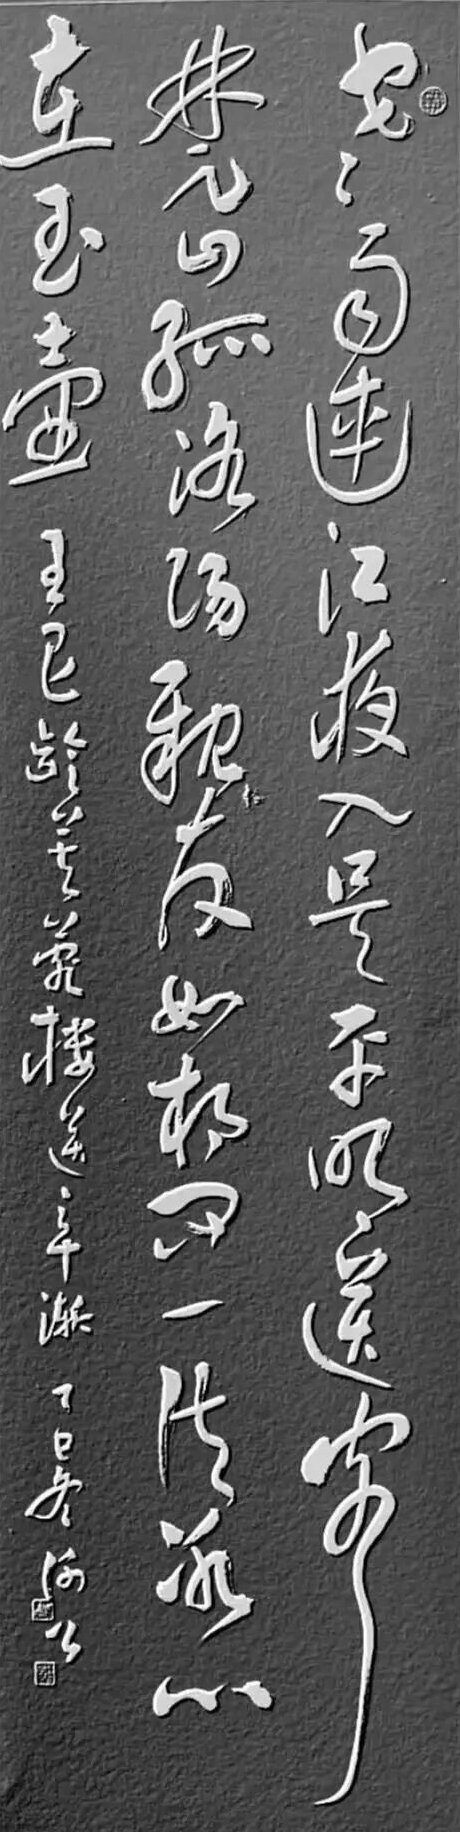 寒雨連江夜入吴平明送客
楚山孤洛陽親友如相問一片冰心
在玉壺 王昌齡芙蓉樓送辛漸 丁巳冬